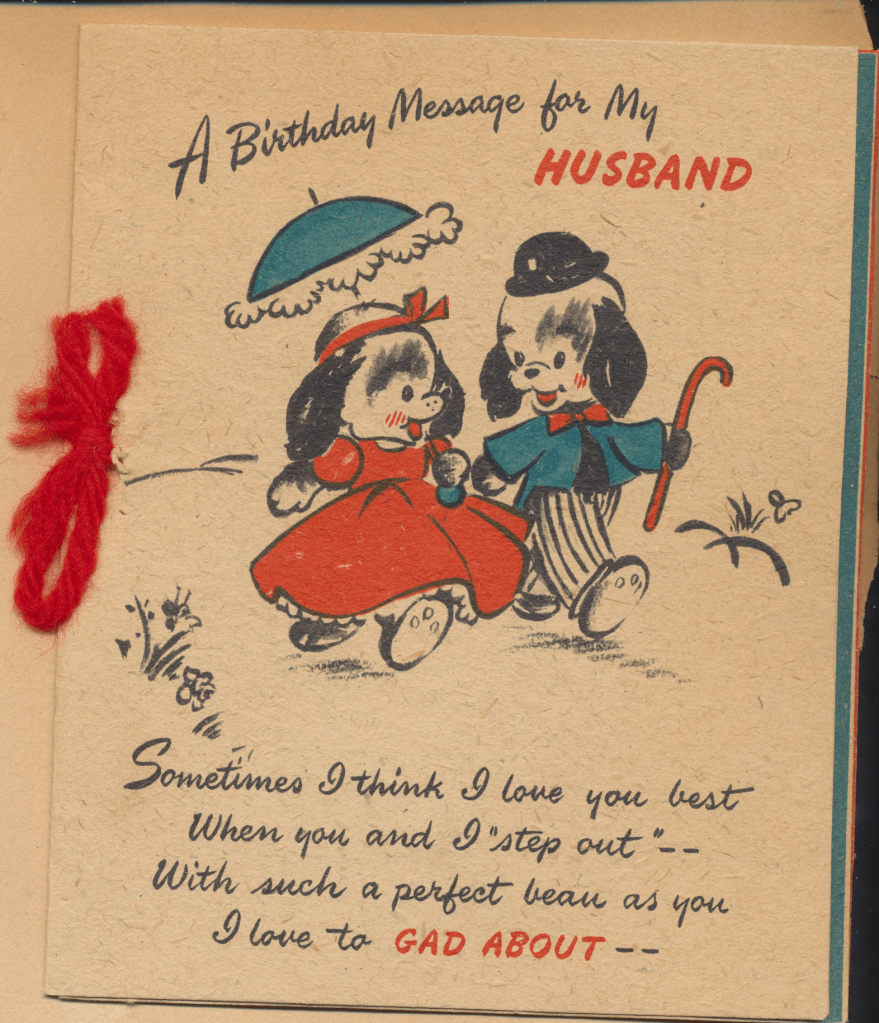 A Birthday Message for My
HUSBAND
Sometimes I think I love you best
When you and I "step out"--
With such a perfect beau as you
I love to GAD ABOUT--